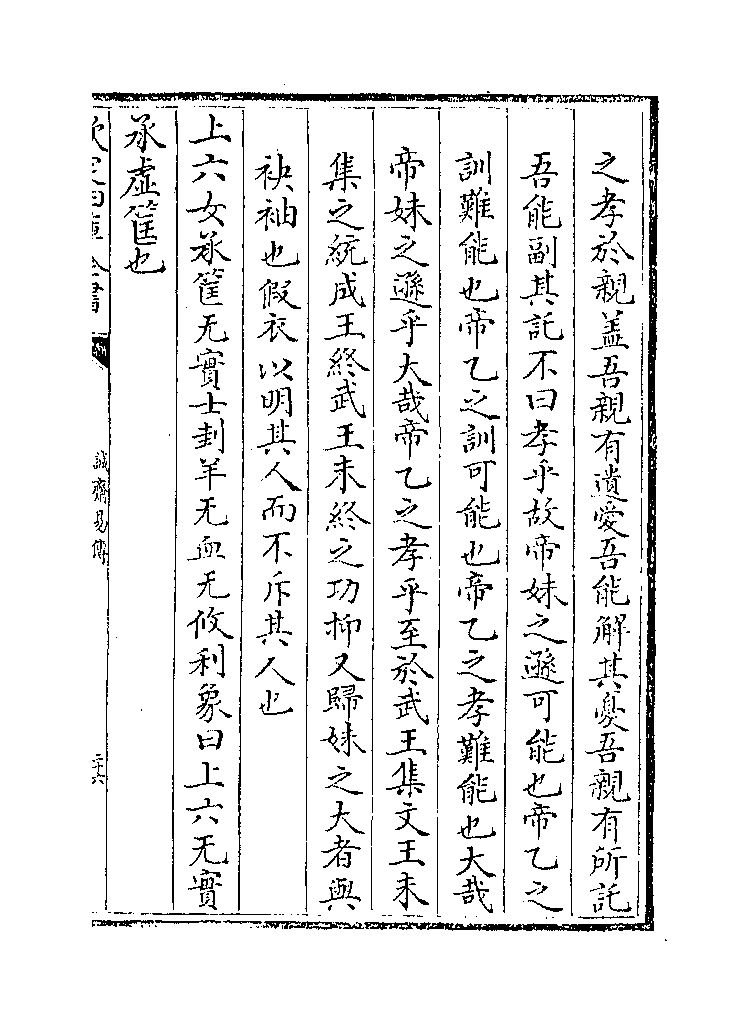 之孝於親盖吾親有遺愛吾能解其憂吾親有所託
吾能副其託不曰孝乎故帝妹之遜可能也帝乙之
訓難能也帝乙之訓可能也帝乙之孝難能也大哉
帝妹之遜乎大哉帝乙之孝乎至於武王集文王未
集之統成王終武王未終之功抑又歸妹之大者與
袂袖也假衣以明其人而不斥其人也
上六女承筐无實士刲羊无血无攸利象曰上六无實
承虚筐也
欽定四庫全書
誠齋易傳
二十六